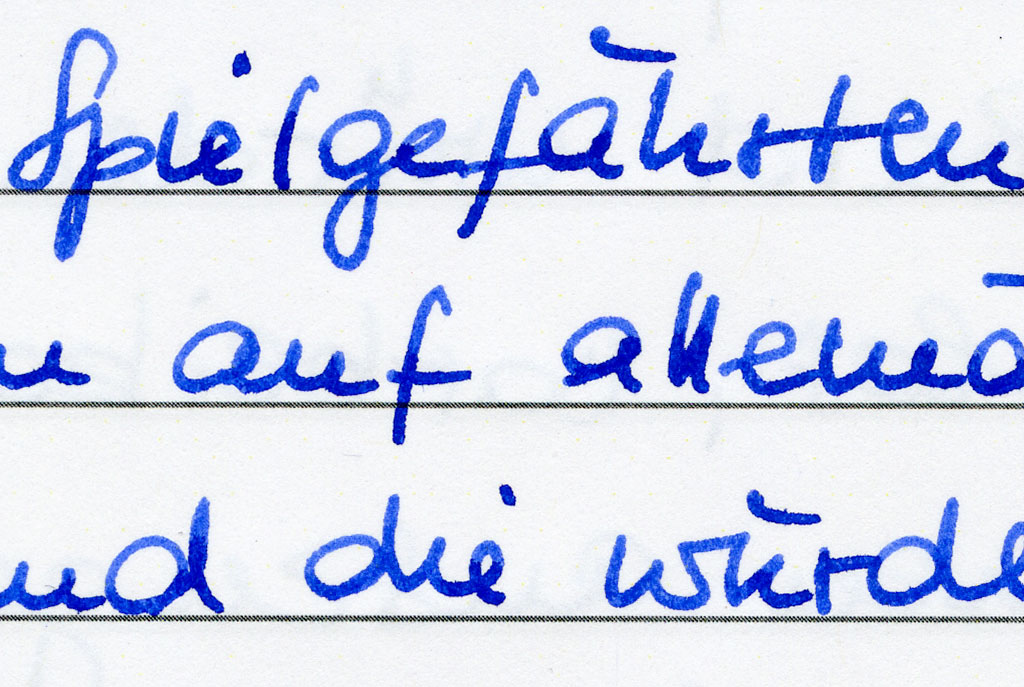 Spielgefährten
auf allemä
und die würde